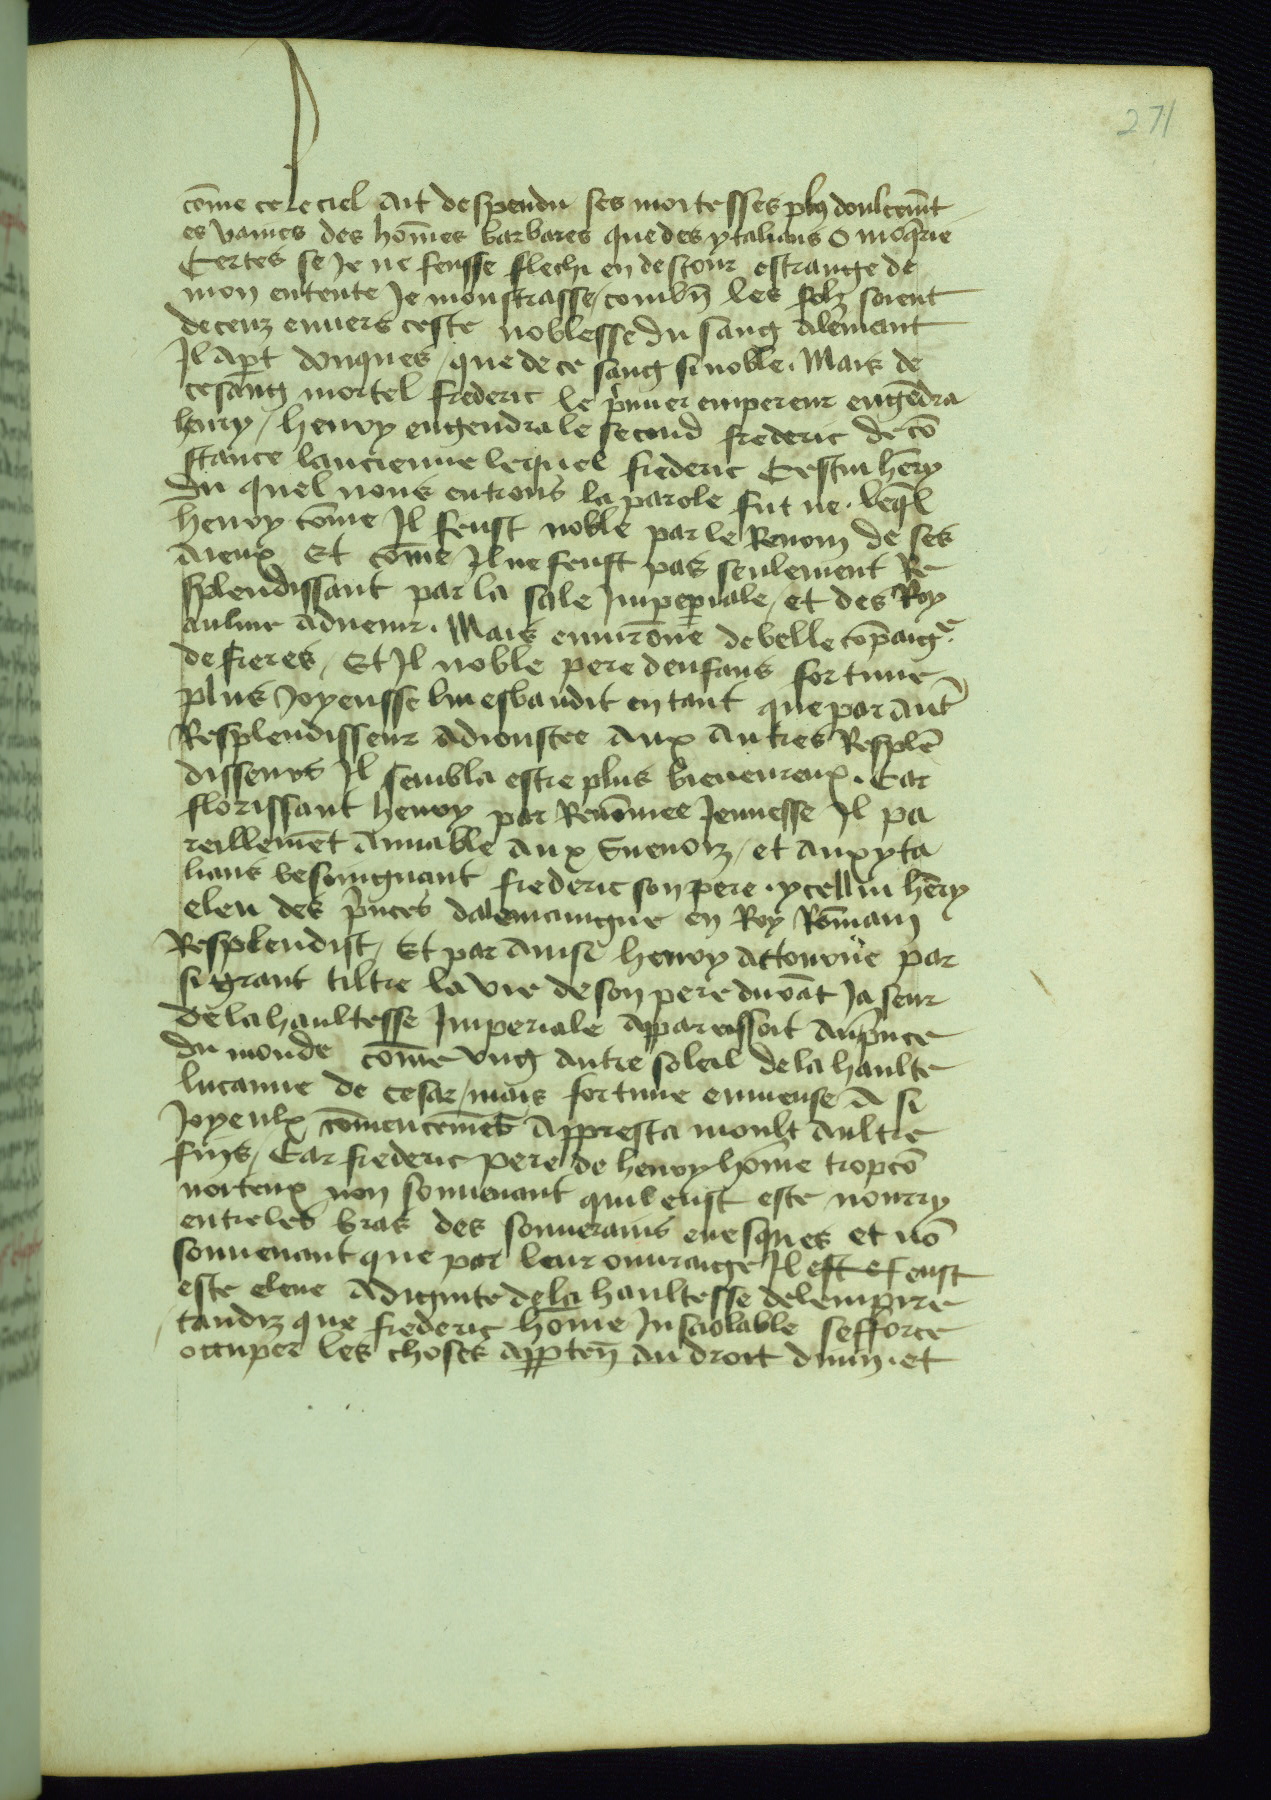 271
cōme ce le ciel ait despendu ses moitesses plꝯ doulcemēt
es vaines des hōmes barbares que des ytalians O moqrie
Certes se Je ne feusse flechi en destour estrange de
mon entente Je monstrasse / combiē les folz soient
deceuz enuers ceste noblesse du sang alemant
Il apꝑt donques / que de ce sang si noble . Mais de
ce sang mortel frederic le p̄mier empereur engēdra
henry / henry engendra le second frederic de cō
stance lancienne lequel frederic Cestui hēry
du quel nous entrons la parole fut ne . leq̄l
henry cōme Il feust noble par le Renom de ses
aieux Et cōme Il ne feust pas seulement Re
splendissant par la sale Imperiale / et des Roy
aulme aduenir . Mais enuirōne de belle cōpaigᵉ
de freres / Et Il noble pere denfans fortune
plus Joyeusse lui esbaudit en tant que par aut̄
Resplendisseur adioustee aux autres Resplē
disseurs Il sembla estre plus bieneureux . Car
florissant henry par Renōmee Jeunesse Il pa
reillemēt amiable aux Sueuoiz / et aux yta
lians besoingnant frederic son pere . ycellui hēry
eleu des p̄nces dalemaingne en Roy Rōmain
Resplendist / Et par ainsi henry attourne par
si grant tiltre la vie de son pere durāt Ja seur
de la haultesse Imperiale apparissoit au p̄nce
du monde cōme vng autre soleil de la haulte
lucanne de cesar / mais fortune enuieuse A si
Joyeulx cōmencemēs appresta moult aultre
fins / Car frederic pere de henry hōme trop cō
uoiteux non souuenant quil eust este nourry
entre les bras des souuerains euesques et nō
souuenant que par leur ouuraige Il est ef eust
este eleue a dignite de la haultesse de lempire
tandiz que frederic hōme Insaolable sefforce
occuper les choses appartn̄ au droit diuin . et